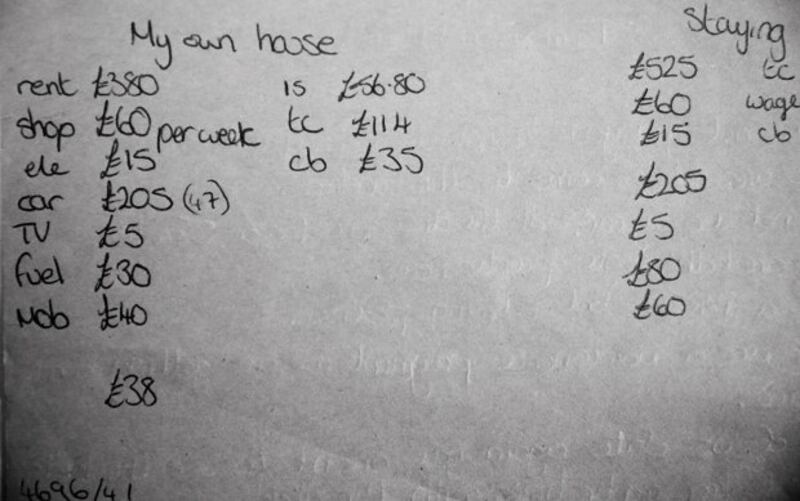 My own house Staying
rent £380 is £56.80 £525 tc
shop £60 per week tc £114 £60 wage
ele £15 cb £35 £15 cb
car £205 (47) £205
TV £5 £5
fuel £30 £80
Mob £40 £60
£38
4696/41